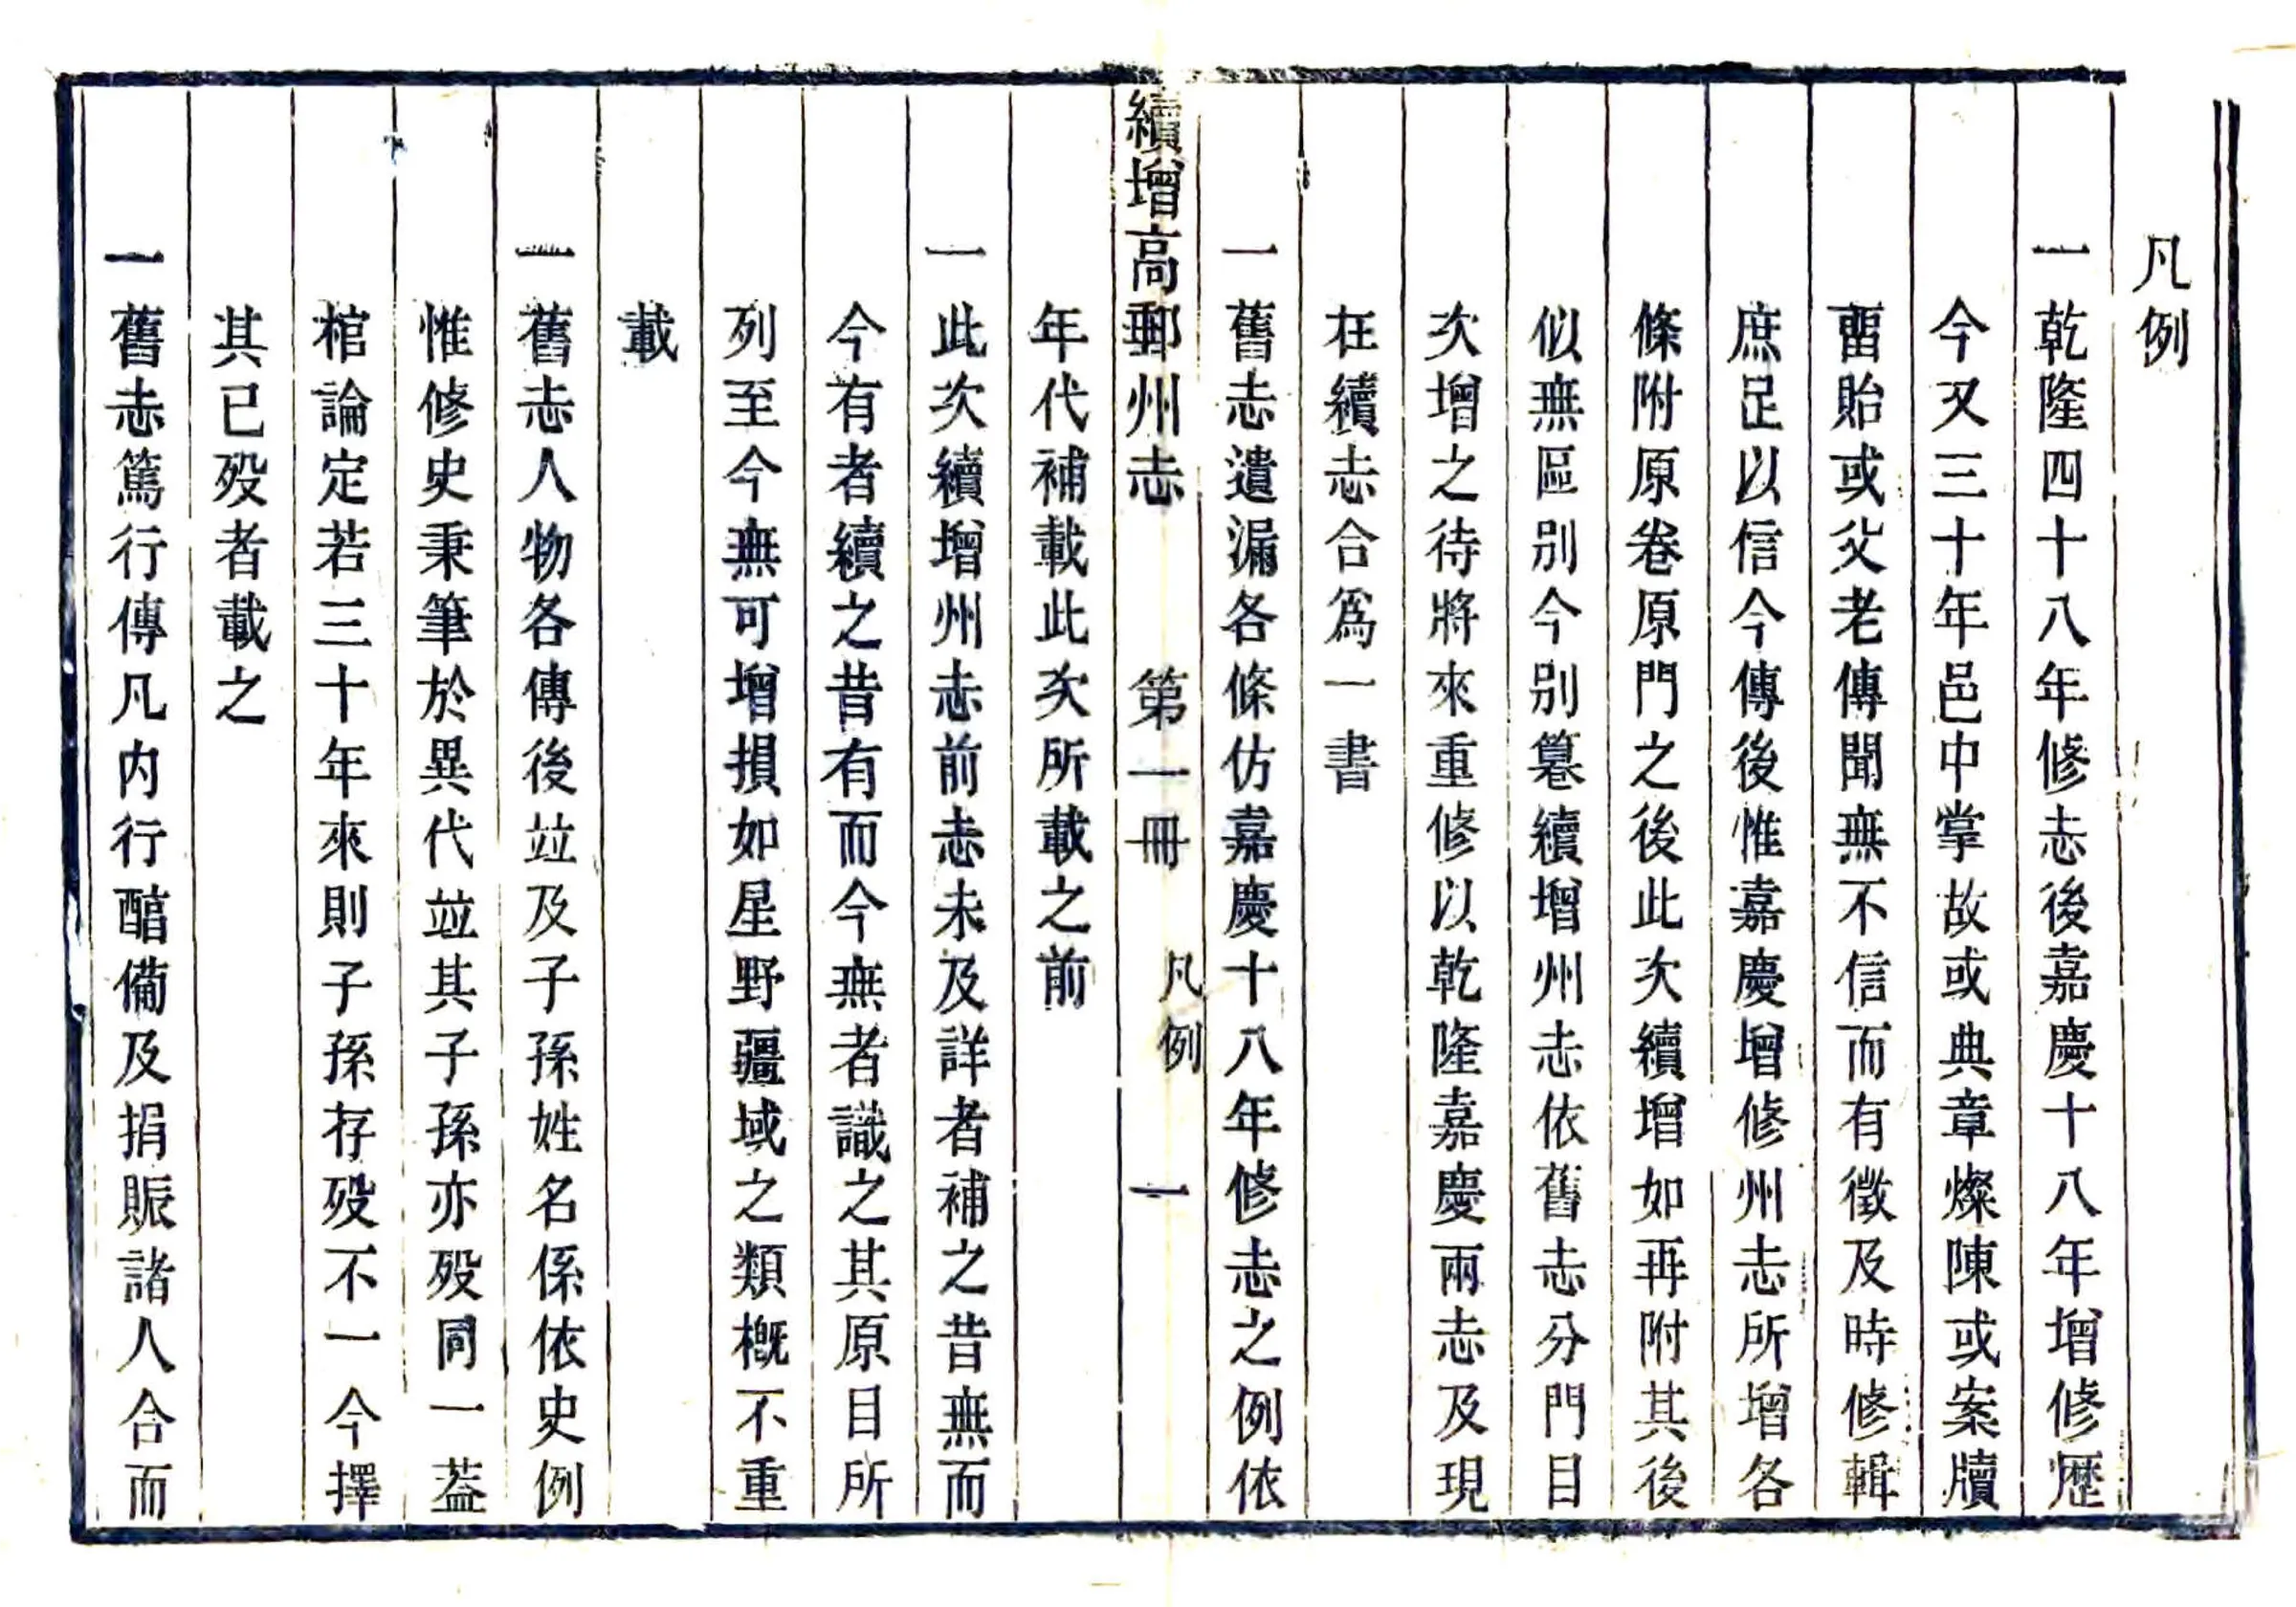 凡例
一乾隆四十八年修志後嘉慶十八年增修歷
今又三十年邑中掌故或典章燦陳或案牘
畱貽或父老傳聞無不信而有徵及時修輯
庶足以信今傳後惟嘉慶增修州志所增各
條附原卷原門之後此次續增如再附其後
似無區別今別纂續增州志依舊志分門目
次增之待將來重修以乾隆嘉慶兩志及現
在續志合爲一書
一舊志遺漏各條仿嘉慶十八年修志之例依
續增高郵州志 第一冊 凡例 一
年代補載此次所載之前
一此次續增州志前志未及詳者補之昔無而
今有者續之昔有而今無者識之其原目所
列至今無可增損如星野疆域之類槪不重
載
一舊志人物各傳後竝及子孫姓名係依史例
惟修史秉筆於異代竝其子孫亦歿同一葢
棺論定若三十年來則子孫存歿不一今擇
其已歿者載之
一舊志篤行傳凡內行醕備及捐賑諸人合而